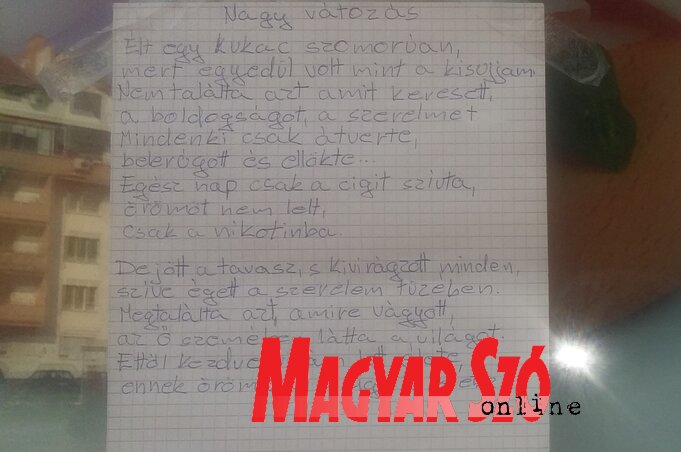 Nagy vátozás
Élt egy kukac szomorúan,
mert egyedül volt mint a kisujjam.
Nem találta azt amit keresett,
a boldogságot, a szerelmet
Mindenki csak átverte,
belerúgott és ellökte...
Egész nap csak a cigit szívta,
örömöt nem lelt,
csak a nikotinba.
De jött a tavasz, s kivirágzott minden,
szíve égett a szerelem tüzében.
Megtalálta azt, amire vágyott,
az ő szemében látta a világot.
Ettől kezdve
ennek
MAGYAR SZÓ
online